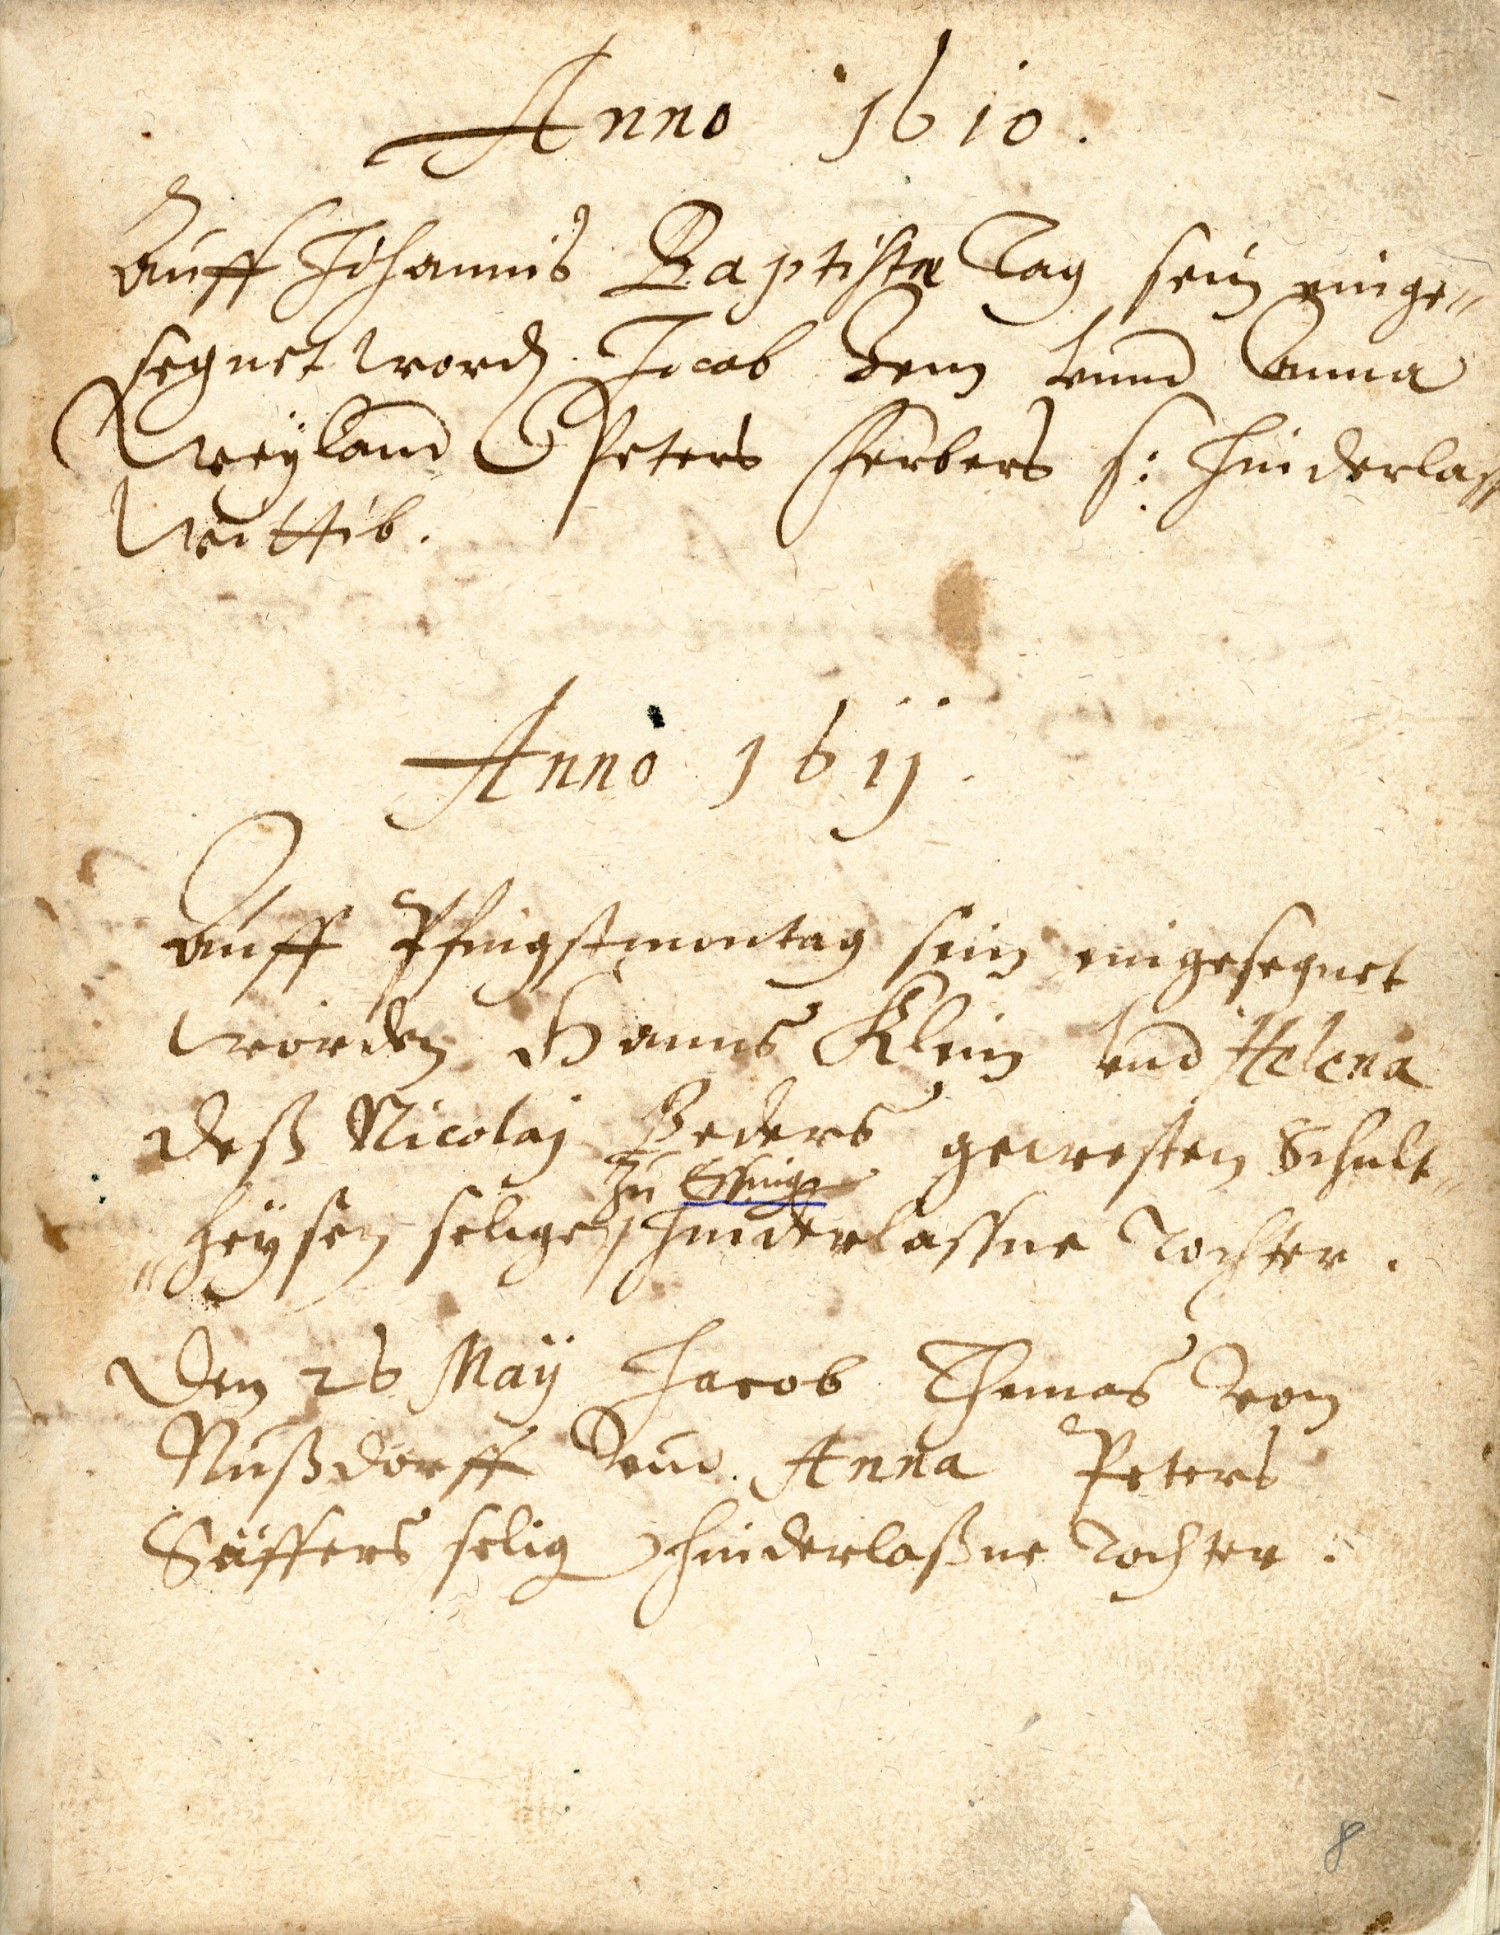 Anno 1610.
Auff Johannis Baptistæ Tag sein einge=
segnet word. Jacob Dem vnnd Anna
Weyland Peters Ferbers s: hinderlass
Wittib.
Anno 1611.
Auff Pfingstmontag sein eingesegnet
worden Hanns Klein vnd Helena
deß Nicolaj Beders gewesten Schult=
zu Essinge
=heysen selige hinderlassne Tochter.
Den 26 Maÿ Jacob Thomas von
Nußdorff vnd. Anna Peters
Säffers selig hinderlaßne Tochter.
8